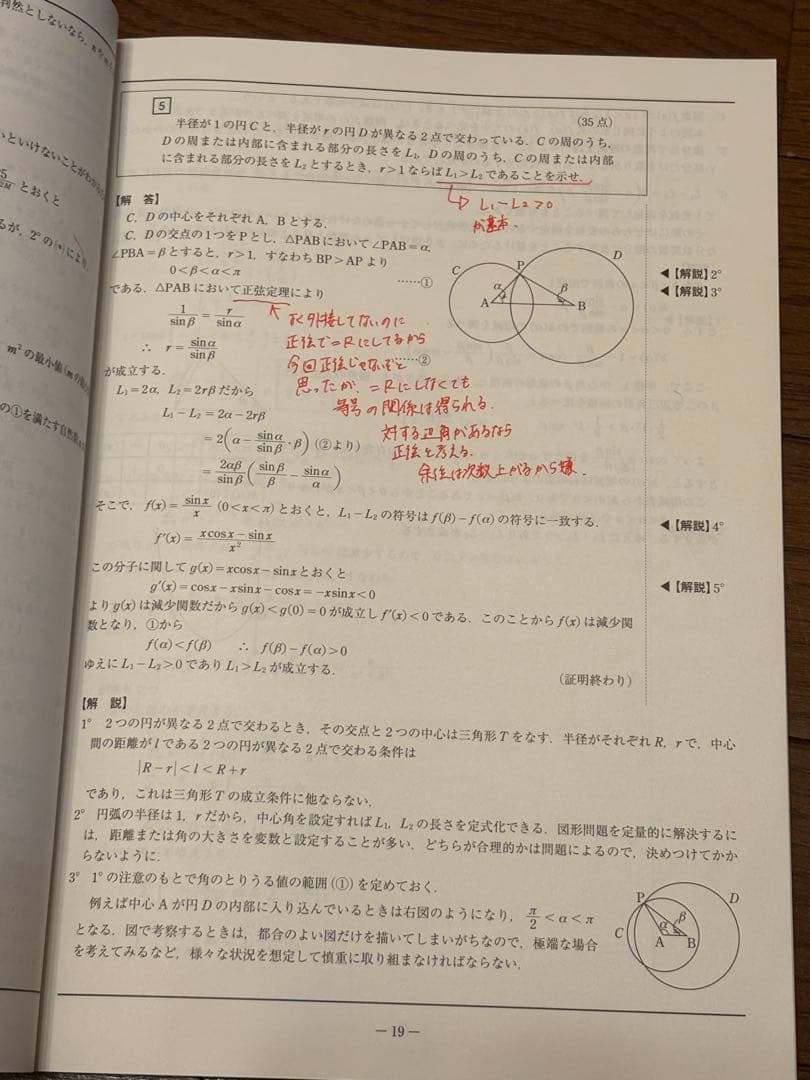 判然としないなら，
いといけないことがわかる
とおくと
るが，2°の(*)により，
m²の最小値(mの
の①を満たす自然数
5
(35点)
半径が1の円Cと，半径がrの円Dが異なる2点で交わっている．Cの周のうち，
Dの周または内部に含まれる部分の長さをL₁，Dの周のうち，Cの周または内部
に含まれる部分の長さをL₂とするとき，r>1ならばL₁>L₂であることを示せ．
↳ L₁-L₂>0
が基本．
【解 答】
C，Dの中心をそれぞれA，Bとする．
C，Dの交点の1つをPとし，△PABにおいて∠PAB=α，
∠PBA=βとすると，r>1，すなわちBP>APより
0<β<α<π ……①
である．△PABにおいて正弦定理により
1/sinβ = r/sinα
∴ r = sinα/sinβ ……②
が成立する．
よく外接してないのに
正弦で=Rにしてるから
今回正弦じゃないぞと
思ったが，=Rにしなくても
等号の関係は得られる．
対する辺角があるなら
正弦を考える．
余弦は次数上がるから嫌．
L₁=2α，L₂=2rβだから
L₁-L₂=2α-2rβ
=2(α - sinα/sinβ・β) (②より)
= 2αβ/sinβ (sinβ/β - sinα/α)
C
P
D
α
β
A
B
◀【解説】2°
◀【解説】3°
そこで，f(x)= sinx/x (0<x<π)とおくと，L₁-L₂の符号はf(β)-f(α)の符号に一致する．
◀【解説】4°
f′(x)= (xcosx-sinx)/x²
この分子に関してg(x)=xcosx-sinxとおくと
g′(x)=cosx-xsinx-cosx=-xsinx<0
◀【解説】5°
よりg(x)は減少関数だからg(x)<g(0)=0が成立しf′(x)<0である．このことからf(x)は減少関
数となり，①から
f(α)<f(β) ∴ f(β)-f(α)>0
ゆえにL₁-L₂>0でありL₁>L₂が成立する．
(証明終わり)
【解 説】
1° 2つの円が異なる2点で交わるとき，その交点と2つの中心は三角形Tをなす．半径がそれぞれR，rで，中心
間の距離がlである2つの円が異なる2点で交わる条件は
|R-r|<l<R+r
であり，これは三角形Tの成立条件に他ならない．
2° 円弧の半径は1，rだから，中心角を設定すればL₁，L₂の長さを定式化できる．図形問題を定量的に解決するに
は，距離または角の大きさを変数と設定することが多い．どちらが合理的かは問題によるので，決めつけてかか
らないように．
3° 1°の注意のもとで角のとりうる値の範囲(①)を定めておく．
例えば中心Aが円Dの内部に入り込んでいるときは右図のようになり，π/2<α<π
となる．図で考察するときは，都合のよい図だけを描いてしまいがちなので，極端な場合
を考えてみるなど，様々な状況を想定して慎重に取り組まなければならない．
P
D
C
α
β
A
B
― 19 ―